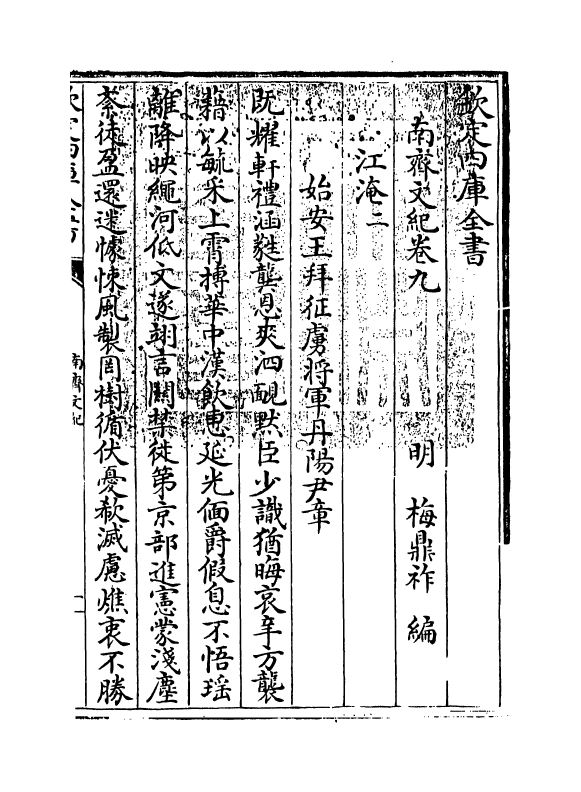 欽定四庫全書
南齊文紀卷九
明 梅鼎祚 編
江淹二
始安王拜征虜將軍丹陽尹章
既耀軒禮涵㲲龔恩爽泗靦黙臣少識猶晦哀年方襲
籍以毓采上霄摶華中漢飲恵延光偭爵假息不悟瑶
離降映繩河低文遂朝言闗禁徙第京部進憲蒙淺塵
柰徒盈還迷懅悚風製罔樹循伏憂欷滅慮燋衷不勝
欽定四庫全書
南齊文紀